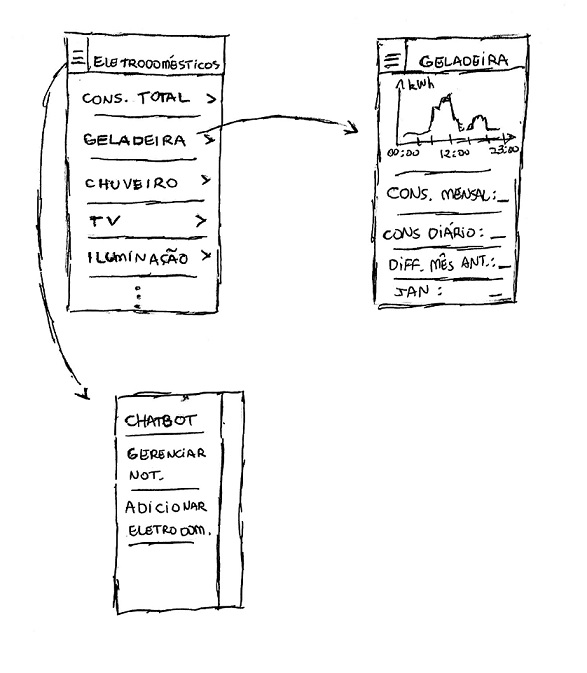 ELETRODOMÉSTICOS
CONS. TOTAL >
GELADEIRA >
CHUVEIRO >
TV >
ILUMINAÇÃO >
GELADEIRA
kWh
00:00 12:00 23:00
CONS. MENSAL:_
CONS DIÁRIO: _
DIFF. MÊS ANT.:_
JAN : _
CHATBOT
GERENCIAR
NOT.
ADICIONAR
ELETRODOM.